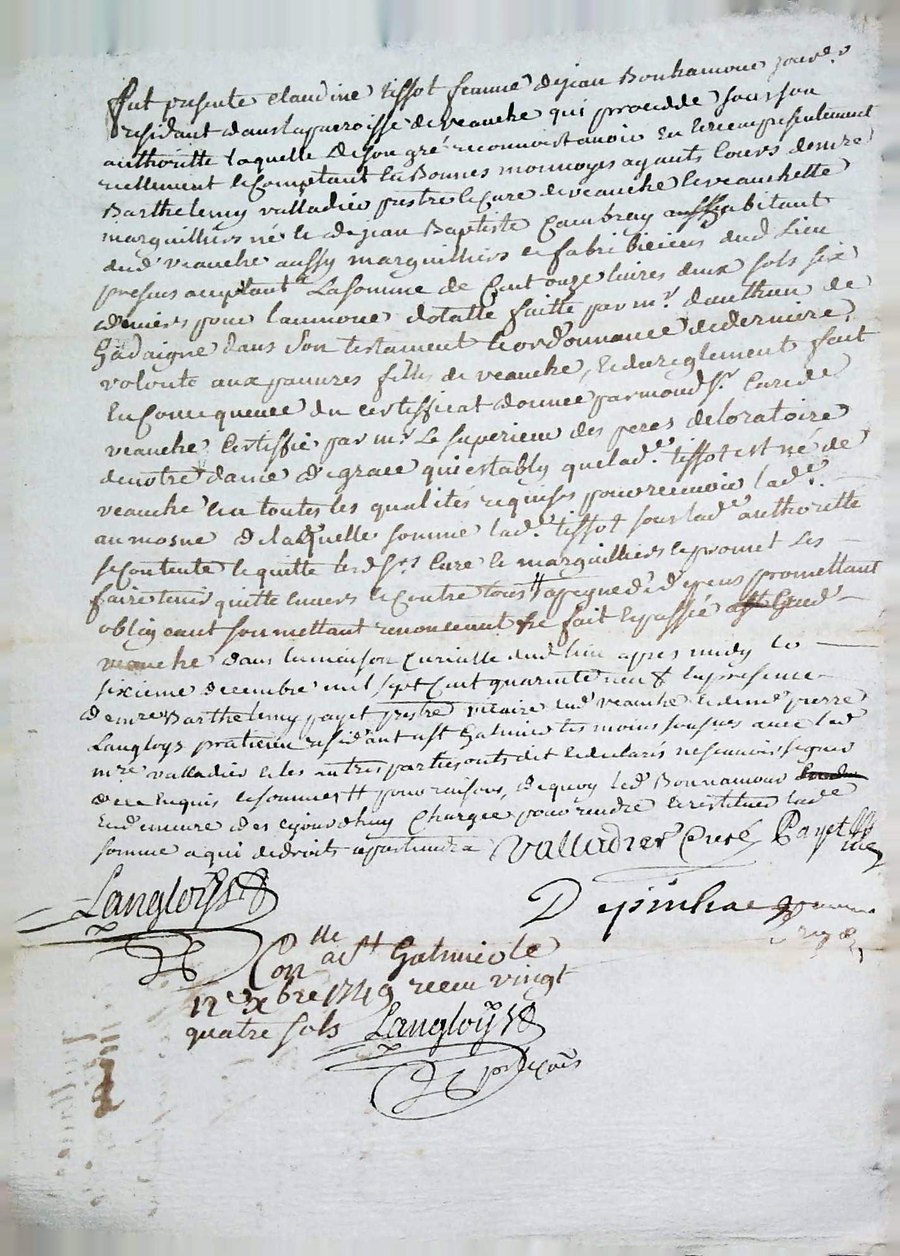 fut presente claudine tissot femme de jean Bonnamour
residant dans la parroisse de veauche qui procedde sous son
authoritte laquelle de son gré reconnoit avoir eu et receu presentement
reellement et comptant en Bonnes monnoyes ayants cours de mre
Barthelemy valladier prestre et curé de veauche et veauchette
marguilliers né et de jean Baptiste habitant
dud veauche aussy marguilliers et fabriciens dud lieu
presens acceptant la somme de cent onze livres deux sols six
deniers pour laumone dotalle faitte par mr dauthun de
Gadaigne dans son testament et ordonnance de derniere
volonte aux pauvres filles de veauche, et du reglement fait
en consequence du certifficat donnee par mond sr curé de
veauche certiffié par mr le superieur des peres de loratoire
de notre dame de grace qui establÿ que lad. tissot est né de
veauche en toutes les qualités requises pour recevoir lad.
aumosne de laquelle somme lad. tissot sous lad. authoritte
se contente et quitte lesd srs curé et marguilliers et promet les
faire tenir quitte envers et contre tous a peyne de depens promettant
obligeant soumettant renonceant fait et passé aud
veauche dans la maison curialle dud lieu apres midy le
sixieme decembre mil sept cent quarante neuf en presence
de mre Barthelemy payet prestre vicaire aud veauche et de me pierre
Langloys praticien residant a st Galmier temoins avec led
mre valladier et les autres parties ont dit et declaré ne scavoir signer
de ce enquis et sommes pour raisons, de quoy led Bonnamour
en demeure des ajourdhuy chargée pour rendre et restituer lad.
somme a qui de droits apartiendra Valladier Curé Payet
Langloys
Depinhac
Conlle a st Galmier le
12e xbre 1749 receu vingt
quatre sols Langloys